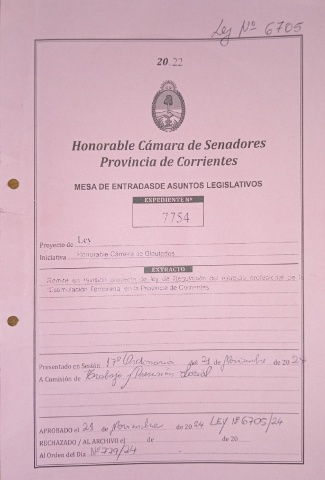 Ley Nº 6705
20 22
Honorable Cámara de Senadores
Provincia de Corrientes
MESA DE ENTRADASDE ASUNTOS LEGISLATIVOS
EXPEDIENTE Nº
7754
Proyecto de Ley
Iniciativa Honorable Cámara de Diputados
EXTRACTO
Remite en revisión proyecto de ley de Regulación del ejercicio profesional de la
Estimulación Temprana, en la Provincia de Corrientes.
Presentado en Sesión 17º Ordinaria del 21 de Noviembre de 20 24
A Comisión de Trabajo y Previsión Social
APROBADO el 28 de Noviembre de 20 24 LEY Nº 6705/24
RECHAZADO / AL ARCHIVO el de de 20
Al Orden del Día Nº 779/24